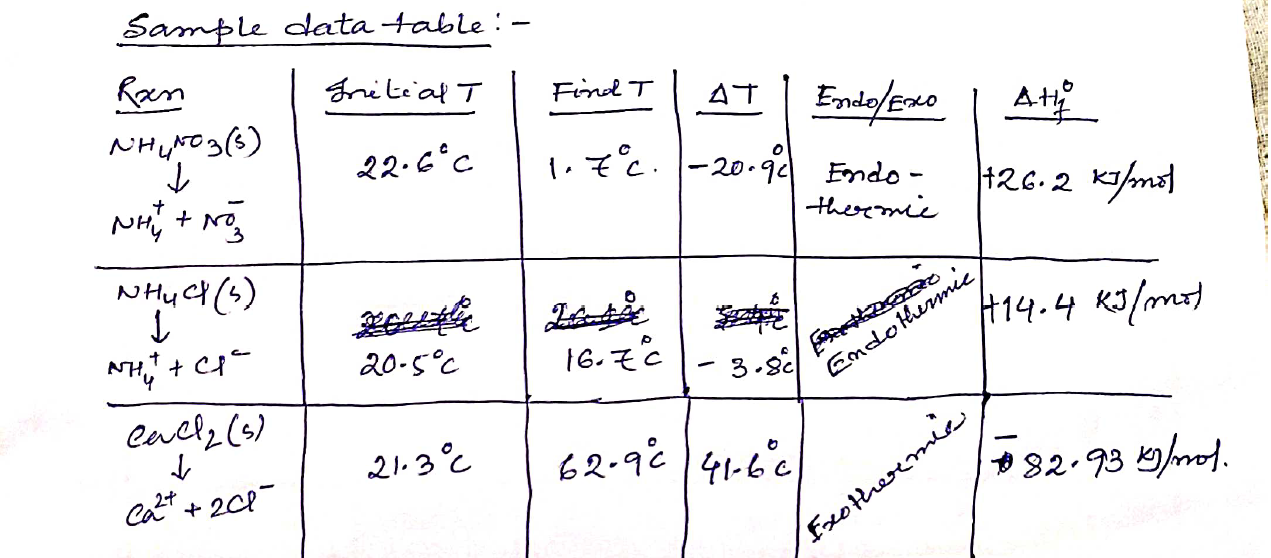 Sample data table:-
Rxn Initial T Final T ΔT Endo/Exo ΔH°f
NH4NO3(s)
↓
NH4+ + NO3-
22.6°C 1.7°C. -20.9°C Endo-
thermic
+26.2 KJ/mol
NH4Cl(s)
↓
NH4+ + Cl-
20.5°C 16.7°C -3.8°C Endothermic +14.4 KJ/mol
CaCl2(s)
↓
Ca2+ + 2Cl-
21.3°C 62.9°C 41.6°C Exothermic -82.93 KJ/mol.